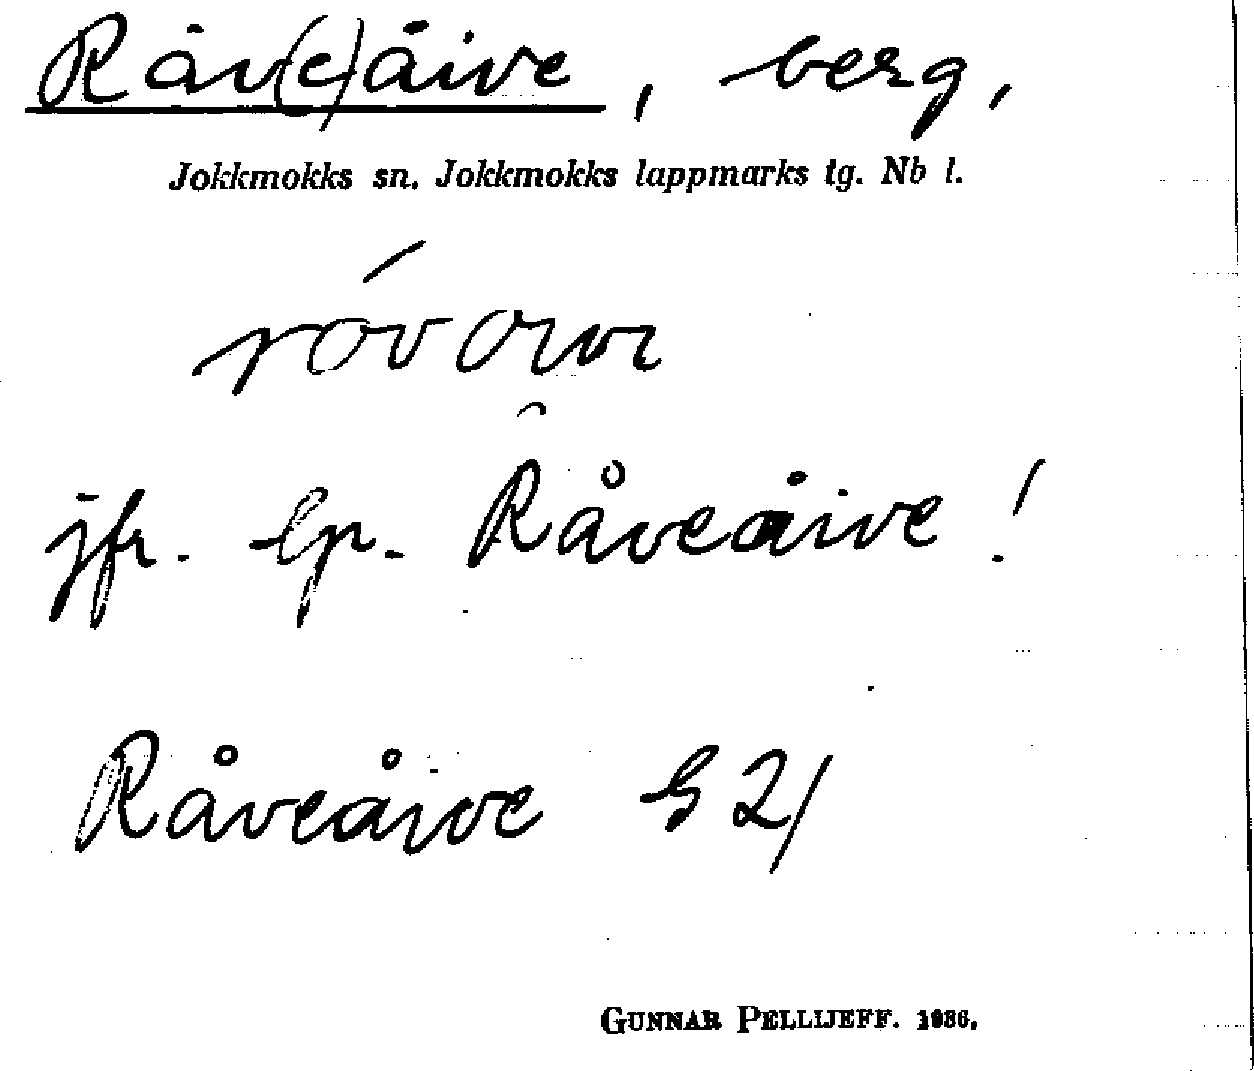 Råv(e)åive, berg,
Jokkmokks sn. Jokkmokks lappmarks tg. Nb l.
jfr. lp. Råveåive!
Råveåive
GUNNAR PELLIJEFF. 1936.